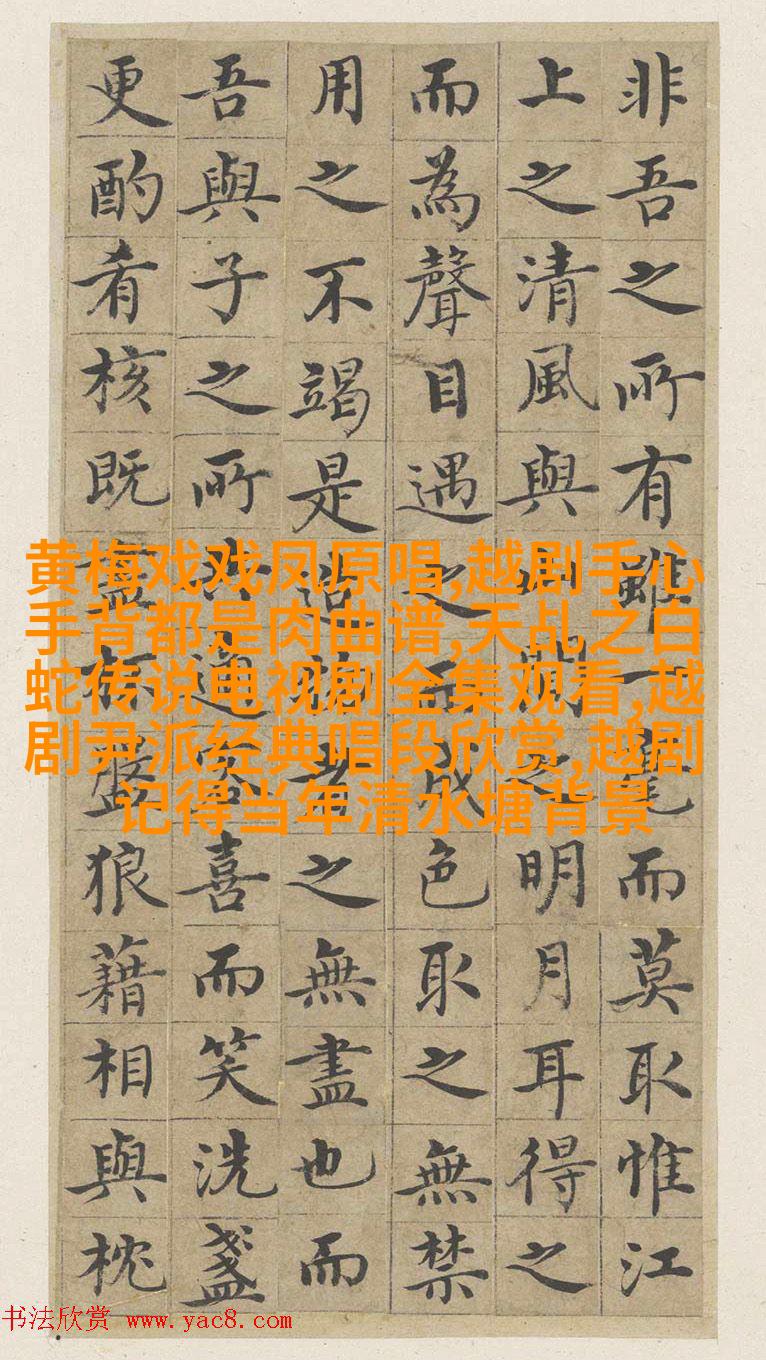 非吾之所有雖一毫而莫取惟江
上之清風與山間之明月耳得之
而為聲目遇之而成色取之無禁
用之不竭是造物者之無盡也而
吾與子之所共適客喜而笑洗盞
更酌肴核既盡杯盤狼藉相與枕
黄梅戏戏凤原唱,越剧手心
手背都是肉曲谱,天乩之白
蛇传说电视剧全集观看,越
剧尹派经典唱段欣赏,越剧
记得当年清水塘背景
书法欣赏 www.yac8.com